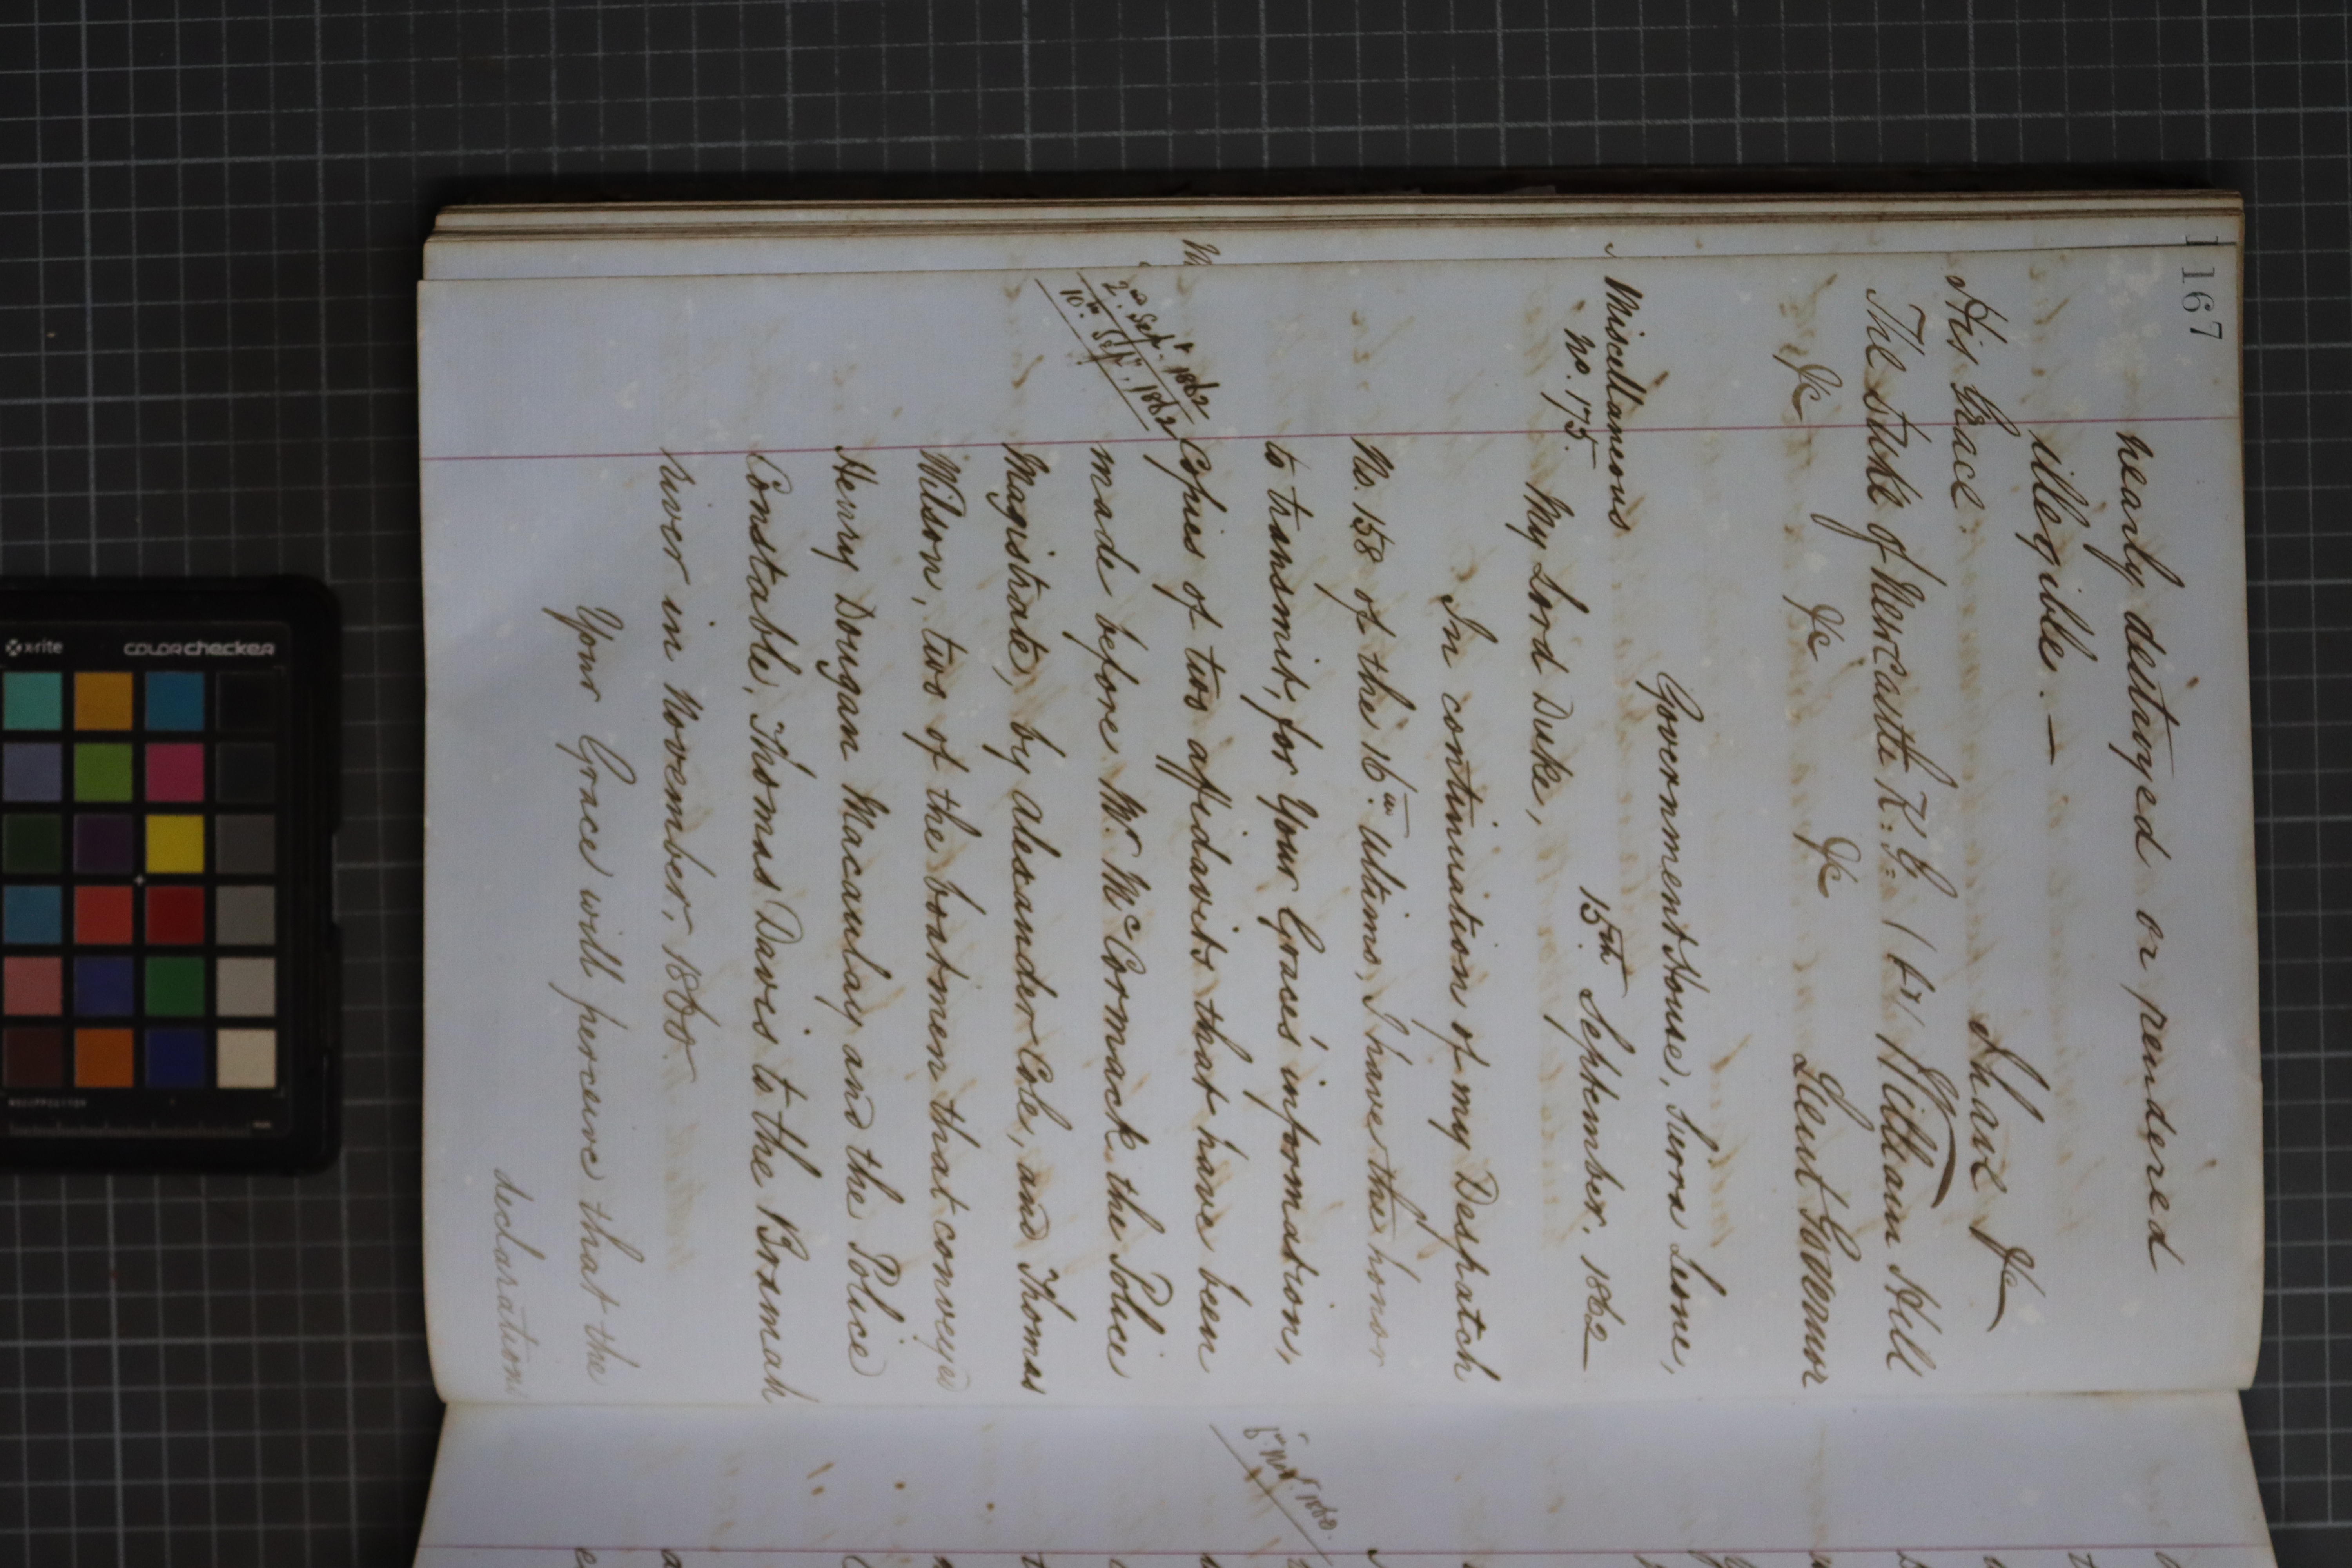 167
nearly destroyed or rendered
illegible. —
I have &c
His Grace.
The Duke of Newcastle K: G: (Sd) William Hill
&c &c &c Lieut Governor
Government House, Sierra Leone,
Miscellaneous
No. 175. 15th September. 1862
My Lord Duke,
In continuation of my Despatch
No. 158 of the 16th Ultimo, I have the honor
to transmit, for Your Grace's information,
2nd Sept. 1862
10th Septr. 1862
Copies of two affidavits that have been
made before Mr. McCormack the Police
Magistrate, by Alexander Cole, and Thomas
Wilson, two of the boatmen that conveyed
Henry Dougan Macaulay and the Police
Constable, Thomas Davies to the Bramah
river in November, 1860.
Your Grace will perceive that the
declarations
x-rite colorchecker